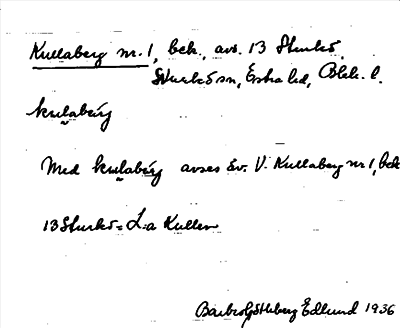 Kullaberg nr. 1, bek., avs. 13 Sturkö,
Sturkö sn, Östra hd, Blek. l.
kulabärg
Med kulabärg avses ev. V. Kullaberg nr 1, bek
13 Sturkö = L:a Kullen
Barbro Edlund 1936